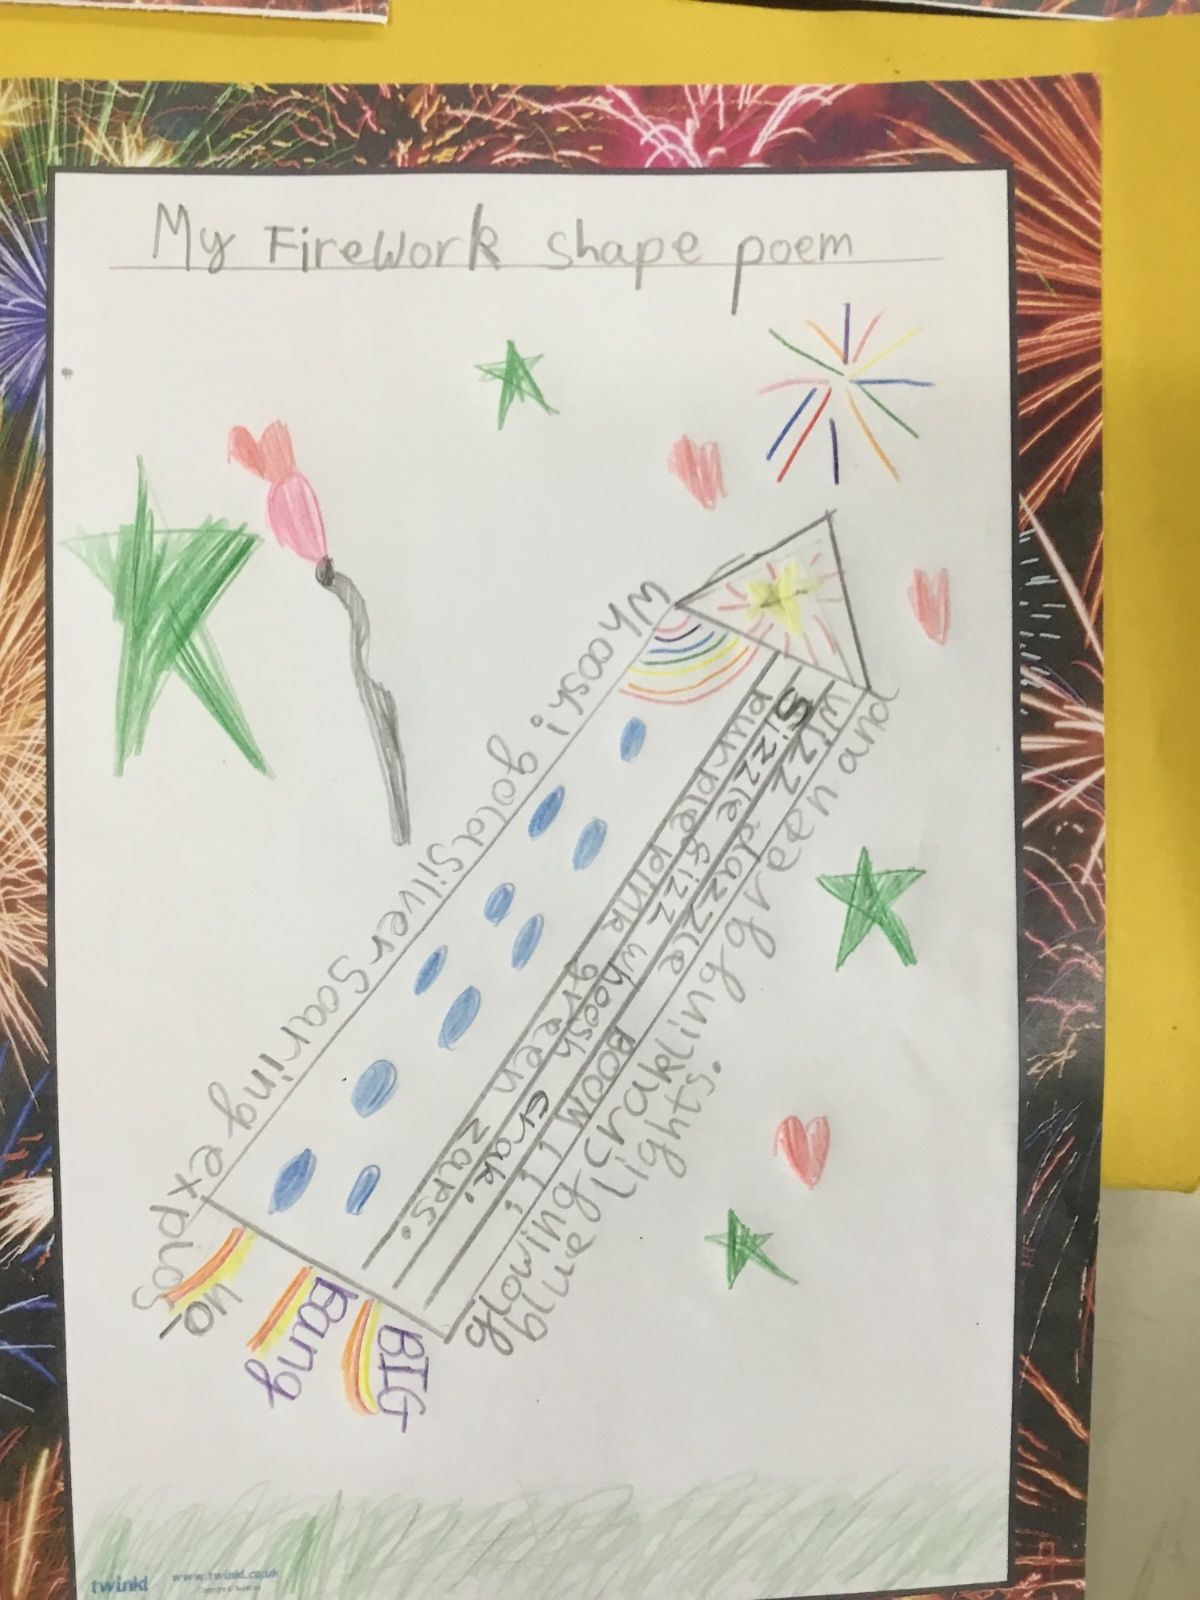 My FireWork shape poem
Whoosh! gold silver soaring explos
BIG
Bang
purple pink green zaps.
Sizzle whoosh crak!
Sizzle dazzle BOOM!!!
glowing crakling green and
blue lights.
twinkl
www.twinkl.co.uk